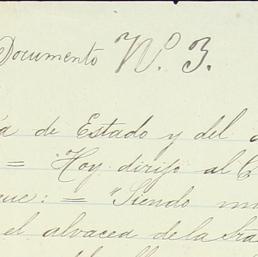 Documento Nº. 3.
de Estado y del
= Hoy dirijo al
: = "Siendo
el albacea de la